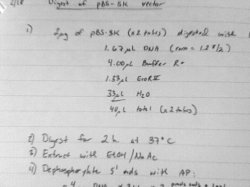 2/28 Digest of pBS-SK vector
1) 2µg of pBS-SK (x2 tubes) digested with
1.67µL DNA
4.00µL Buffer R+
1.33µL EcoRV
33µL H2O
40µL total (x2 tubes)
2) Digest for 2h at 37°C
3) Extract with EtOH/NaAc
4) Dephosphorylate 5' ends with AP: